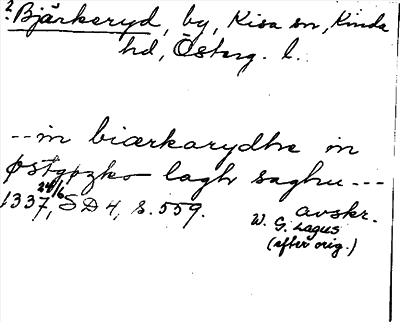 2. Bjärkeryd, by, Kisa sn, Kinda
hd, Österg. l.
-- in biærkarydhe in
østgøzko laghsaghu ---
1337 24/6, SD 4, s. 559. avskr.
W. G. Lagus
(efter orig.)